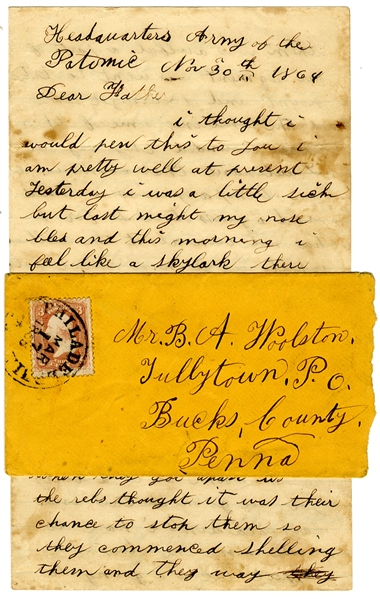 Headquarters Army of the
Potomic Nov 30th 1864
Dear
i thought i
would pen this to you i
am pretty well at present
Yesterday i was a little sick
but last night my nose
bled and this morning i
feel like a skylark there
PHILADEL
MAR
Mr. B. A. Woolston.
Tullytown, P. O.
Bucks, County,
Penna
when they
the rebs thought it was their
chance to stop them so
they commenced shelling
them and they way they